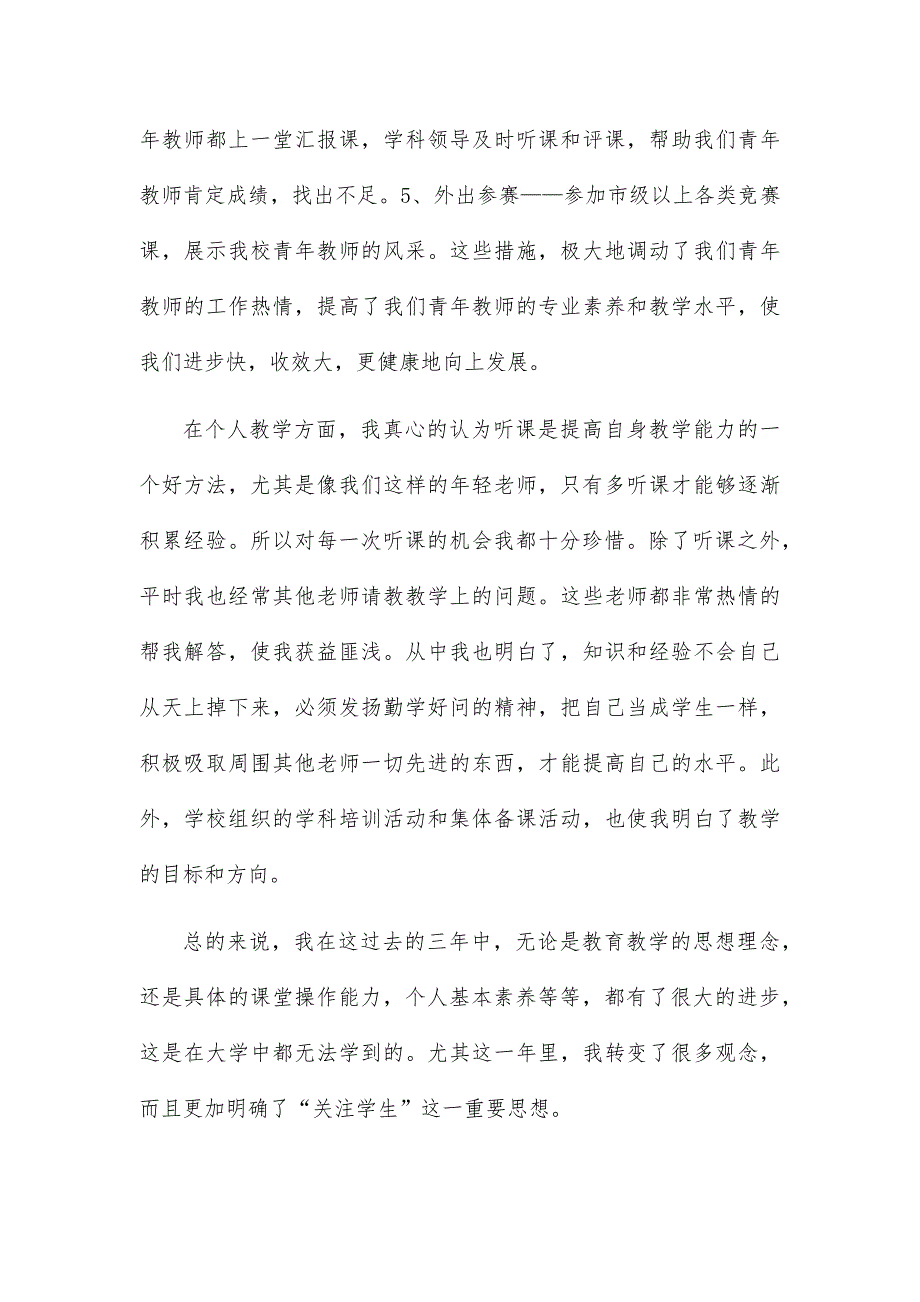 年教师都上一堂汇报课，学科领导及时听课和评课，帮助我们青年
教师肯定成绩，找出不足。5、外出参赛——参加市级以上各类竞赛
课，展示我校青年教师的风采。这些措施，极大地调动了我们青年
教师的工作热情，提高了我们青年教师的专业素养和教学水平，使
我们进步快，收效大，更健康地向上发展。
在个人教学方面，我真心的认为听课是提高自身教学能力的一
个好方法，尤其是像我们这样的年轻老师，只有多听课才能够逐渐
积累经验。所以对每一次听课的机会我都十分珍惜。除了听课之外，
平时我也经常其他老师请教教学上的问题。这些老师都非常热情的
帮我解答，使我获益匪浅。从中我也明白了，知识和经验不会自己
从天上掉下来，必须发扬勤学好问的精神，把自己当成学生一样，
积极吸取周围其他老师一切先进的东西，才能提高自己的水平。此
外，学校组织的学科培训活动和集体备课活动，也使我明白了教学
的目标和方向。
总的来说，我在这过去的三年中，无论是教育教学的思想理念，
还是具体的课堂操作能力，个人基本素养等等，都有了很大的进步，
这是在大学中都无法学到的。尤其这一年里，我转变了很多观念，
而且更加明确了“关注学生”这一重要思想。